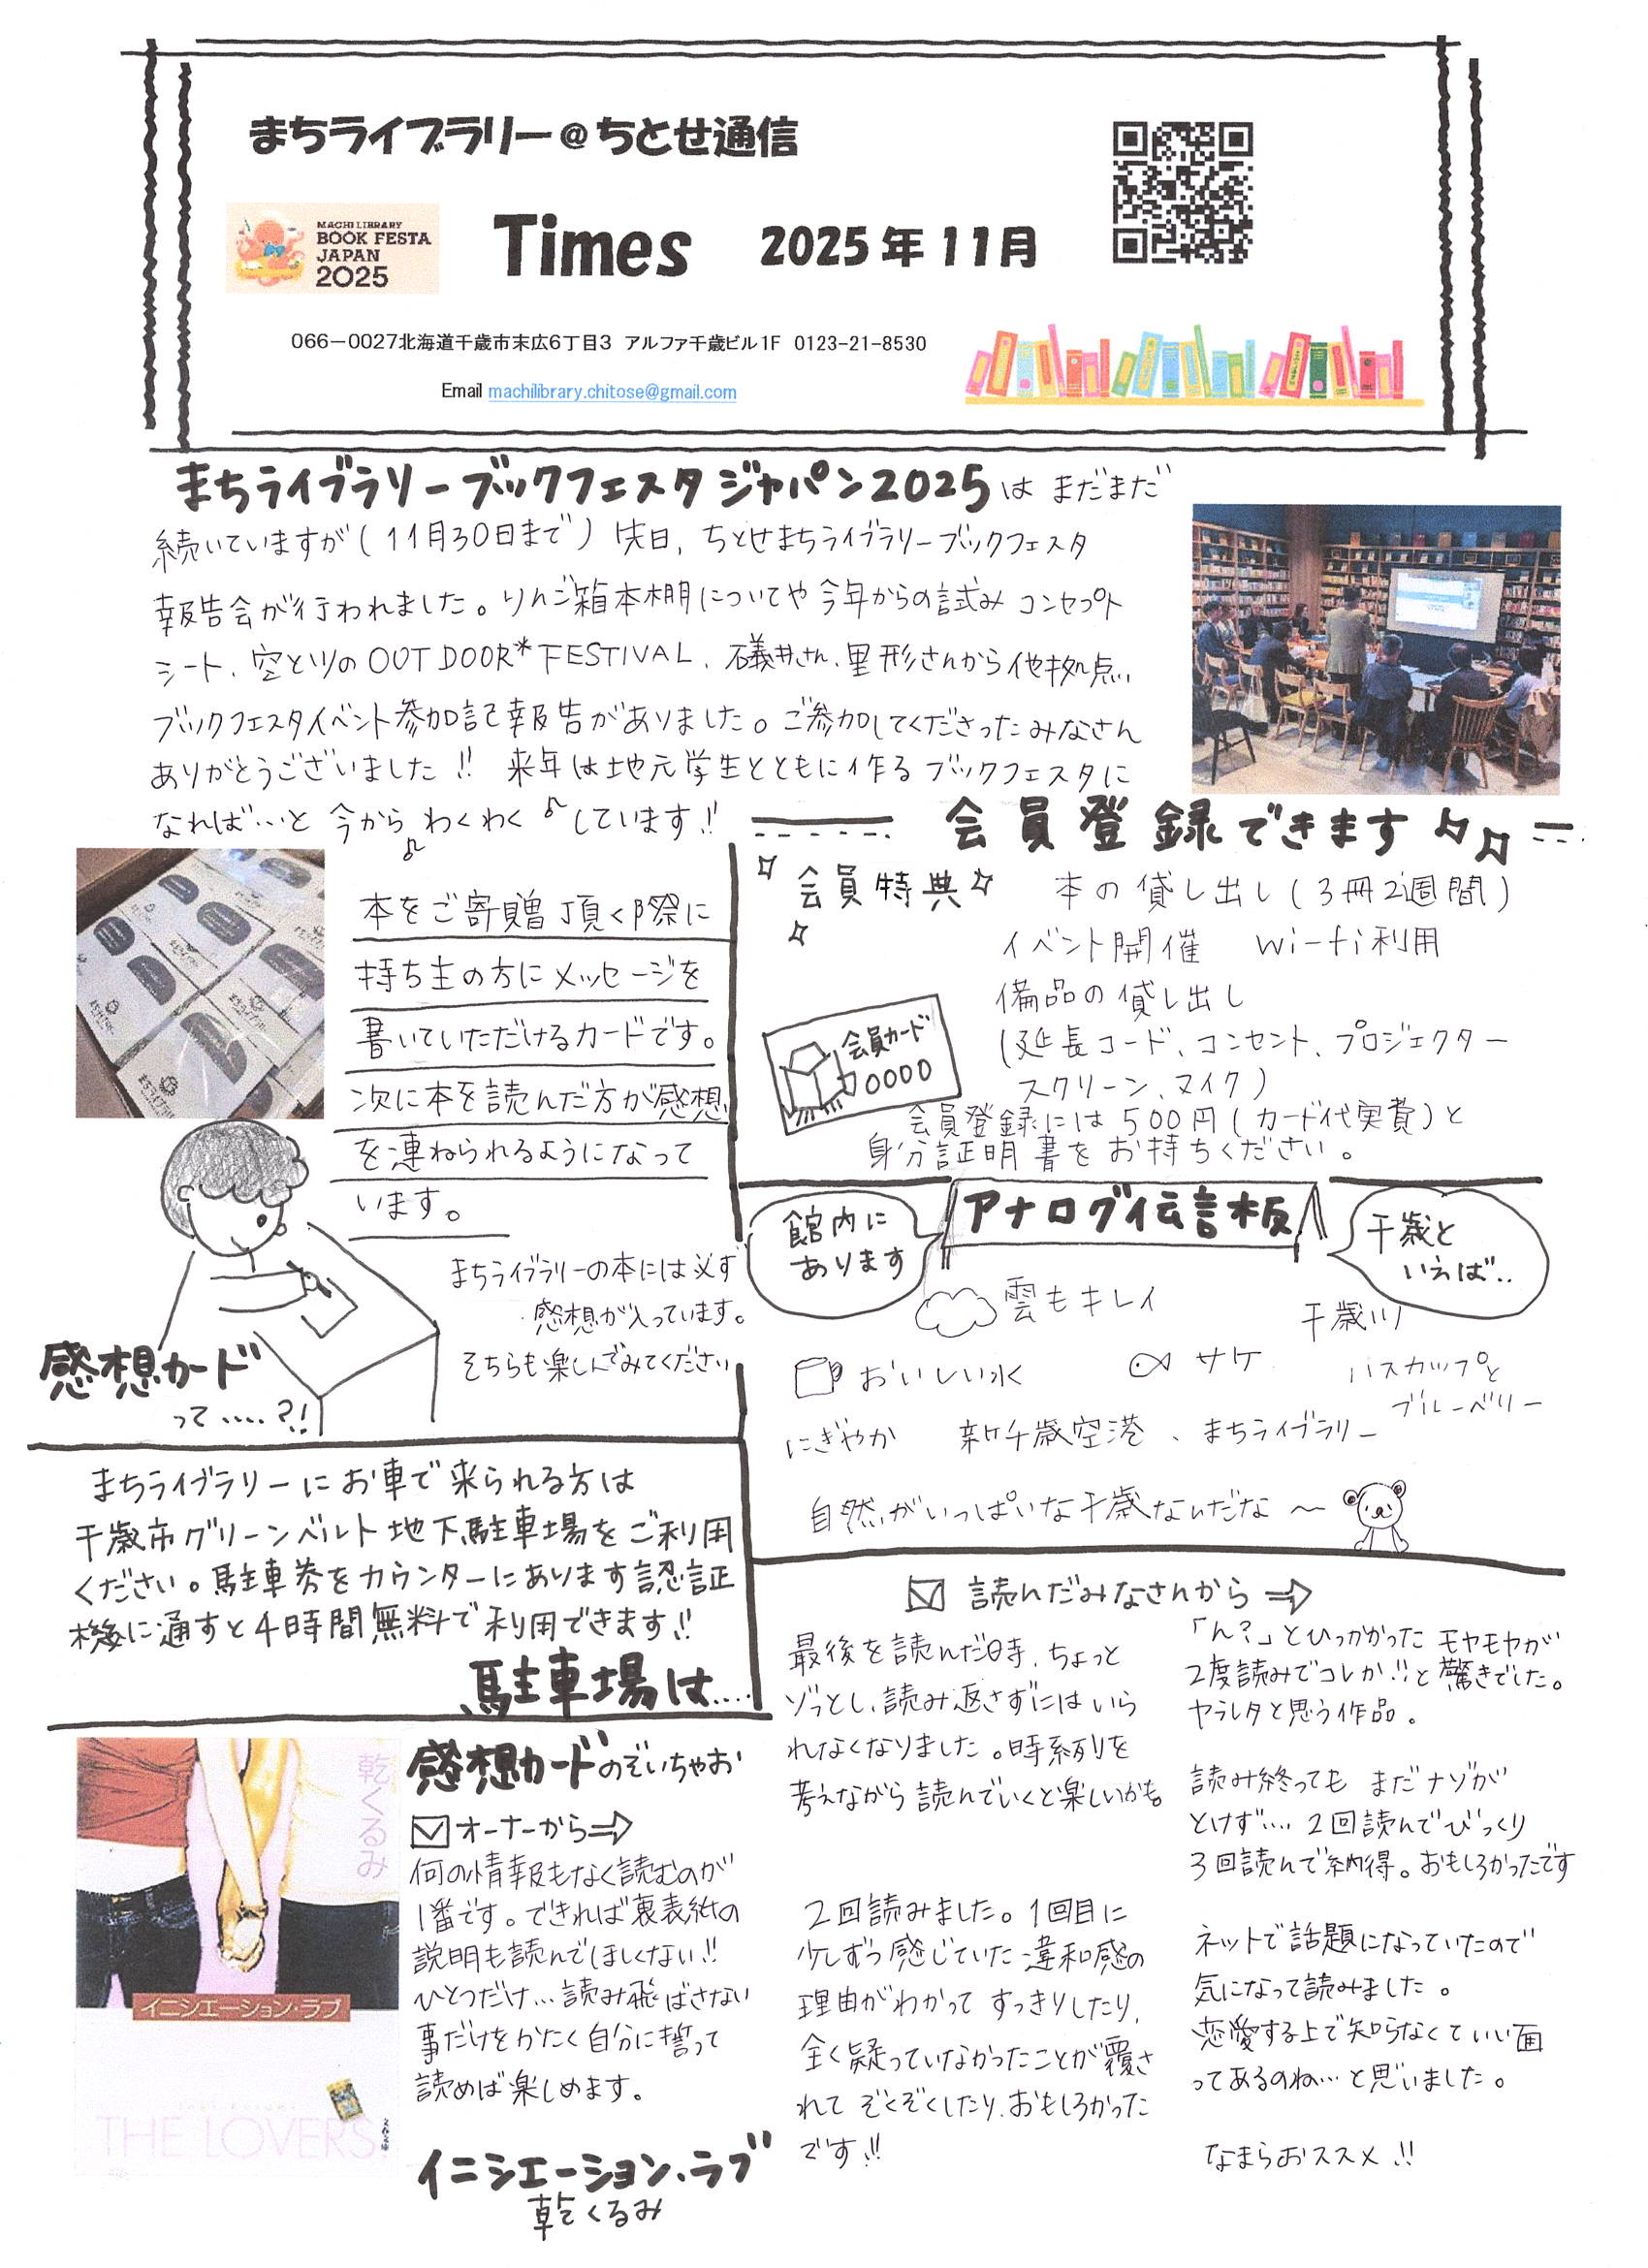 まちライブラリー@ちとせ通信
MACHI LIBRARY
BOOK FESTA
JAPAN
2025
Times 2025年11月
066-0027北海道千歳市末広6丁目3 アルファ千歳ビル1F 0123-21-8530
Email machilibrary.chitose@gmail.com
まちライブラリーブックフェスタジャパン2025は まだまだ
続いていますが(11月30日まで) 先日、ちとせまちライブラリーブックフェスタ
報告会が行われました。りんご箱本棚についてや今年からの試み コンセプト
シート、空とツリのOUTDOOR*FESTIVAL、礒井さん、里形さんから他拠点、
ブックフェスタイベント参加記報告がありました。ご参加してくださったみなさん
ありがとうございました!! 来年は地元学生とともに作るブックフェスタに
なれば…と 今から♪わくわく♪しています!!
本をご寄贈頂く際に
持ち主の方にメッセージを
書いていただけるカードです。
次に本を読んだ方が感想
を連ねられるようになって
います。
まちライブラリーの本には必ず
感想が入っています。
そちらも楽しんでみてください
感想カード
って....?!
会員登録できます
会員特典
本の貸し出し(3冊2週間)
イベント開催 Wi-fi利用
備品の貸し出し
(延長コード、コンセント、プロジェクター
スクリーン、マイク)
会員カード
0000
会員登録には500円(カード代実費)と
身分証明書をお持ちください。
アナログ伝言板
館内に
あります
千歳と
いえば..
雲もキレイ
千歳川
おいしい水
サケ
ハスカップと
ブルーベリー
にぎやか 新千歳空港、まちライブラリー
自然がいっぱいな千歳なんだな〜
まちライブラリーにお車で来られる方は
千歳市グリーンベルト地下駐車場をご利用
ください。駐車券をカウンターにあります認証
機に通すと4時間無料で利用できます!!
駐車場は....
乾くるみ
イニシエーション・ラブ
THE LOVERS
文春文庫
感想カードのぞいちゃお
☑オーナーから⇒
何の情報もなく読むのが
1番です。できれば裏表紙の
説明も読んでほしくない!!
ひとつだけ…読み飛ばさない
事だけをかたく自分に誓って
読めば楽しめます。
イニシエーション・ラブ
乾くるみ
☑読んだみなさんから⇒
最後を読んだ時、ちょっと
ゾッとし、読み返さずにはいら
れなくなりました。時系列を
考えながら読んでいくと楽しいかも。
2回読みました。1回目に
少しずつ感じていた違和感の
理由がわかってすっきりしたり、
全く疑っていなかったことが覆さ
れてぞくぞくしたり、おもしろかった
です!!
「ん?」とひっかかったモヤモヤが
2度読みでコレか!!と驚きでした。
ヤラレタと思う作品。
読み終ってもまだナゾが
とけず…. 2回読んでびっくり
3回読んで納得。おもしろかったです
ネットで話題になっていたので
気になって読みました。
恋愛する上で知らなくていい面
ってあるのね…と思いました。
なまらおススメ!!